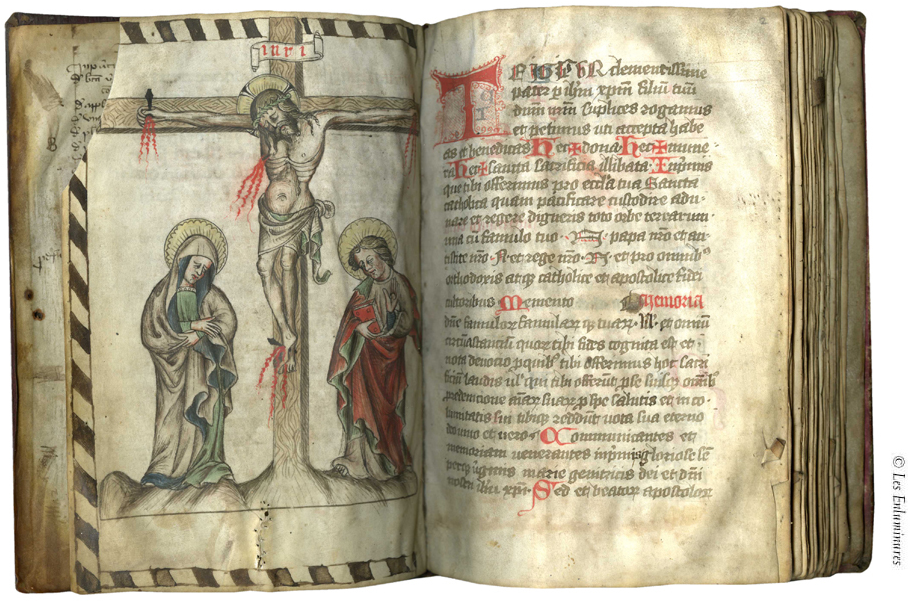 inri
TE IGITUR clementissime
pater p ihm xpm filiu tuu
dnm nrm suplices rogamus
et petimus uti accepta habe
as et benedicas hec + dona hec + mune
ra hec + sancta sacrificia illibata Inprimis
que tibi offerimus pro ecclia tua sancta
catholica quam pacificare custodire adu
nare et regere digneris toto orbe terrarum
una cu famulo tuo N papa nro et an
tistite nro N et rege nro N et pro omnib
orthodoxis atq catholice et apostolice fidei
cultoribus Memento memoria
dne famulor famularuq tuaru N et omniu
circustanciu quor tibi fides cognita est et
nota devocio p quib tibi offerimus hoc sacri
ficiu laudis ul qui tibi offerut p se suisq omnib
p redempcione aiar suar p spe salutis et in co
lumitatis sue tibiq reddut vota sua eterno
deo vivo et vero Communicantes et
memoriam venerantes inprimis gloriose se
p virginis marie genitricis dei et dni
nostri ihu xpi Sed et beator apostolor
© Les Enluminures